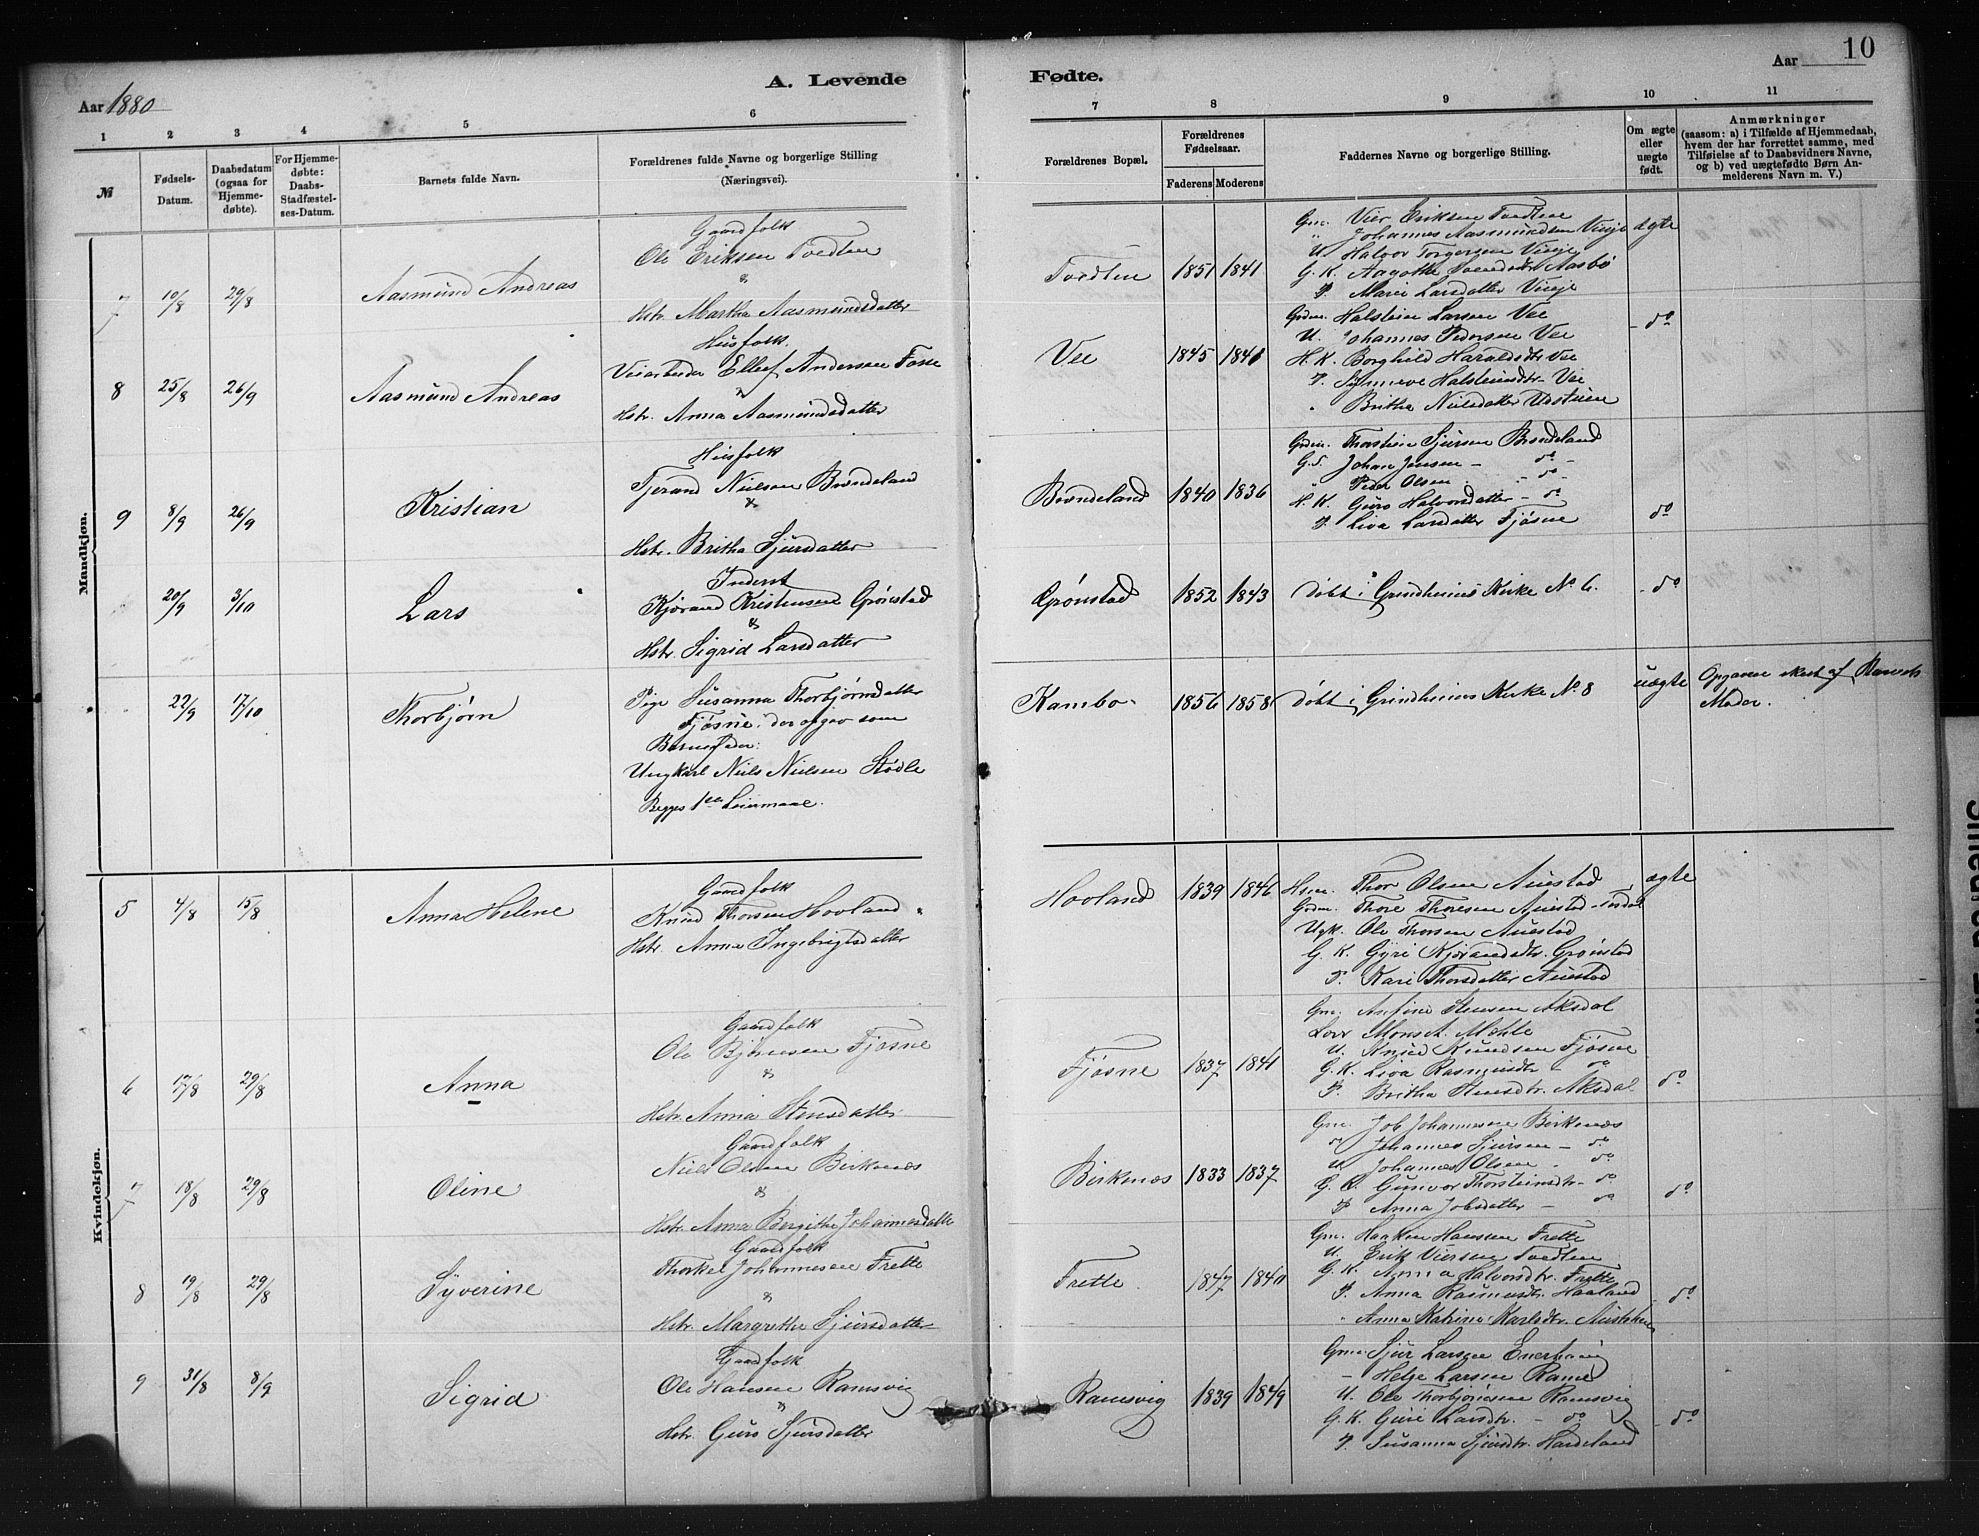 Aar 1880
A. Levende
Fødte.
Aar
10
1 2 3 4 5 6 7 8 9 10 11
№
Fødsels-Datum.
Daabsdatum (ogsaa for Hjemmedøbte).
For Hjemmedøbte: Daabs-Stadfæstelses-Datum.
Barnets fulde Navn.
Forældrenes fulde Navne og borgerlige Stilling (Næringsvei).
Forældrenes Bopæl.
Forældrenes Fødselsaar.
Faderens Moderens
Faddernes Navne og borgerlige Stilling.
Om ægte eller uægte født.
Anmærkninger
(saasom: a) i Tilfælde af Hjemmedaab,
hvem der har forrettet samme, med
Tilføielse af to Daabsvidners Navne,
og b) ved uægtefødte Børn An-
melderens Navn m. V.)
Mandkjøn.
7 10/8 29/8 Aasmund Andreas
Gaardfolk
Ole Eriksen Tvedten
&
Hstr. Martha Aasmundsdatter
Tvedten 1851 1841
Gm. Vier Eriksen Tvedten
" Johannes Aasmundsen Vieje
U. Halvor Torgersen Vieje
G. K. Aagothe Aasbø
P. Mari Larsdatter Vieje
ægte
8 25/8 26/9 Aasmund Andreas
Husfolk.
Veiarbeider Ellef Andersen Fosse
&
Hstr. Anna Aasmundsdatter
Vee 1845 1841
Grdm. Halstein Larsen Vee
U. Johannes Pedersen Vee
H. K. Borghild Haraldsdtr Vee
P. Synneve Halsteinsdtr. Vee
" Britha Nielsdatter
do
9 8/9 26/9 Kristian
Husfolk
Tjerand Nielsen Brøndeland
&
Hstr. Britha Sjursdatter
Brøndeland 1840 1836
Grdm. Thorstein Sjursen Brøndeland
G.S. Johan Jensen - do -
" Peder Olsen - do
H. K. Guro Halvorsdatter - do
P. Liva Larsdatter Fjøsne
do
20/9 3/10 Lars
Inderst
Kjørand Kristensen Grønstad
&
Hstr. Sigrid Larsdatter
Grønstad 1852 1843 Døbt i Grindheims Kirke No 6. - do
22/9 17/10 Thorbjørn
Pige Susanna Thorbjørnsdatter
Fjøsne, der opgav som
Barnefader:
Ungkarl Niels Nielsen Stødle
Begges 1ste Leiermaal.
Kambo 1856 1858 Døbt i Grindheims Kirke No 8 uægte Opgaven skeet af Barnets
Moder.
Kvindekjøn.
5 4/8 15/8 Anna Helene
Gaardfolk
Knud Thorsen Hovland
Hstr. Anna Ingebrigtsdatter
Hovland 1839 1846
Hsm. Thor Olsen Auestad
Grdm. Thore Thoresen Auestad
Ugk. Ole Thorsen Auestad
G. K. Gyri Kjørandsdtr. Grønstad
P. Kari Thorsdatter Auestad
ægte
6 17/8 29/8 Anna
Gaardfolk
Ole Fjøsne
&
Hstr. Anna Stensdatter
Fjøsne 1837 1841
Gm. Stensen Aksdal
Mons A. Mehle
U. Knud Knudsen Fjøsne
G. K. Liva Rasmusdtr - do
P. Britha Stensdtr. Aksdal
do
7 18/8 29/8 Oline
Gaardfolk
Niels Olsen Birkenæs
&
Hstr. Anna Bergithe Johannesdatter
Birkenæs 1833 1837
Gm. Job Johannesen Birkenæs
Johannes Sjursen - do
U. Johannes Olsen - do
Gunvor Thorsteinsdtr - do
P. Anna Jobsdatter - do
do
8 19/8 29/8 Syverine
Gaardfolk
Thorkel Johannesen Frette
&
Hstr. Margrethe Sjursdatter
Frette 1847 1840
Gm. Haaken Hansen Frette
U. Erik Viersen Tvedten
G. K. Anna Halvorsdtr. Frette
P. Anna Rasmusdtr. Haaland
" Anna Katrine Karlsdtr.
do
9 31/8 8/9 Sigrid
Gaardfolk
Ole Hansen Ramsvig
&
Hstr. Guro Sjursdatter
Ramsvig 1839 1849
Gm. Sjur Larsen Enerhaug
- Helge Larsen Rame
U. Ole Thorbjørnsen Ramsvig
G. K. Guri Larsdtr. - do
P. Susanna Sjursdtr. Hardeland
do